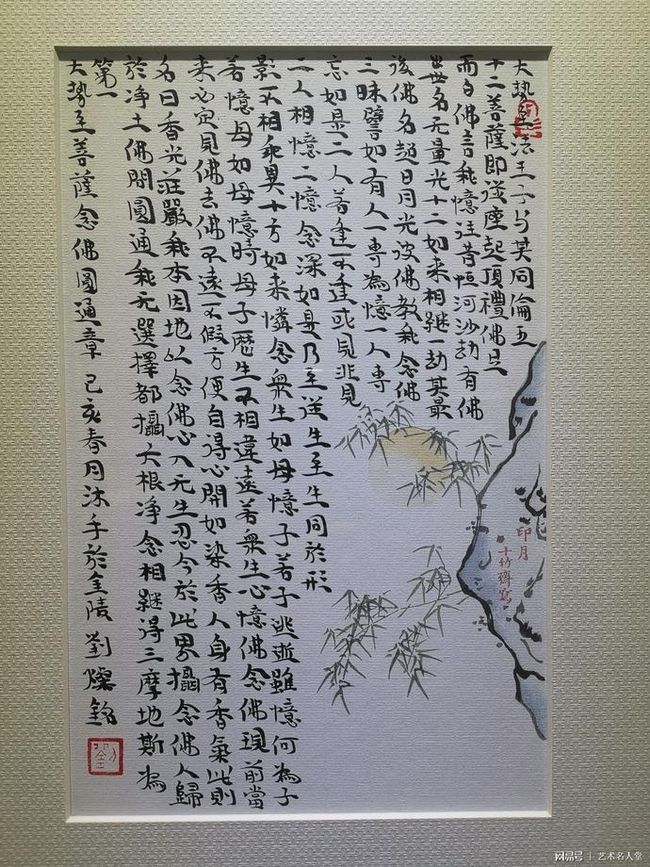 大勢至法王子与其同倫五
十二菩薩即從座起頂禮佛足
而白佛言我憶往昔恒河沙劫有佛
出世名无量光十二如来相継一劫其最
後佛名超日月光彼佛教我念佛
三昧譬如有人一専為憶一人専
忘如是二人若逢不逢或見非見
二人相憶二憶念深如是乃至從生至生同於形
影不相乖異十方如来憐念衆生如母憶子若子逃逝雖憶何為子
若憶母如母憶時母子歷生不相違遠若衆生心憶佛念佛現前當
来必定見佛去佛不遠不假方便自得心開如染香人身有香氣此則
名曰香光莊嚴我本因地以念佛心入无生忍今於此界攝念佛人歸
於净土佛問圓通我无選擇都攝六根净念相継得三摩地斯為
第一
大勢至菩薩念佛圓通章 己亥春月沐手於金陵 劉燦銘
印月
十竹齋寫
网易号 | 艺术名人堂